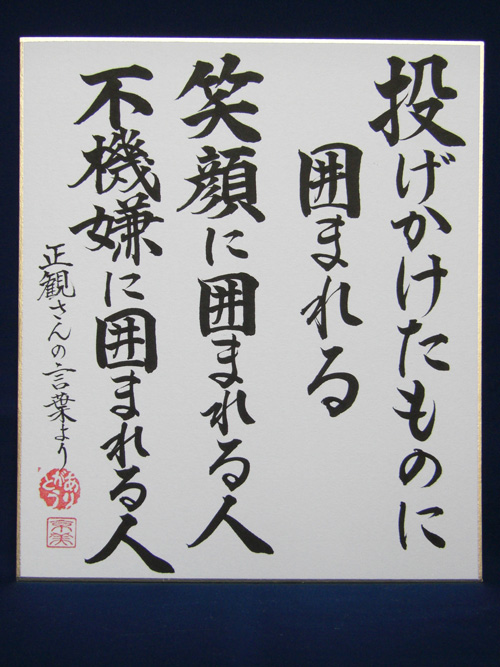 投げかけたものに
囲まれる
笑顔に囲まれる人
不機嫌に囲まれる人
正観さんの言葉より
ありがとう